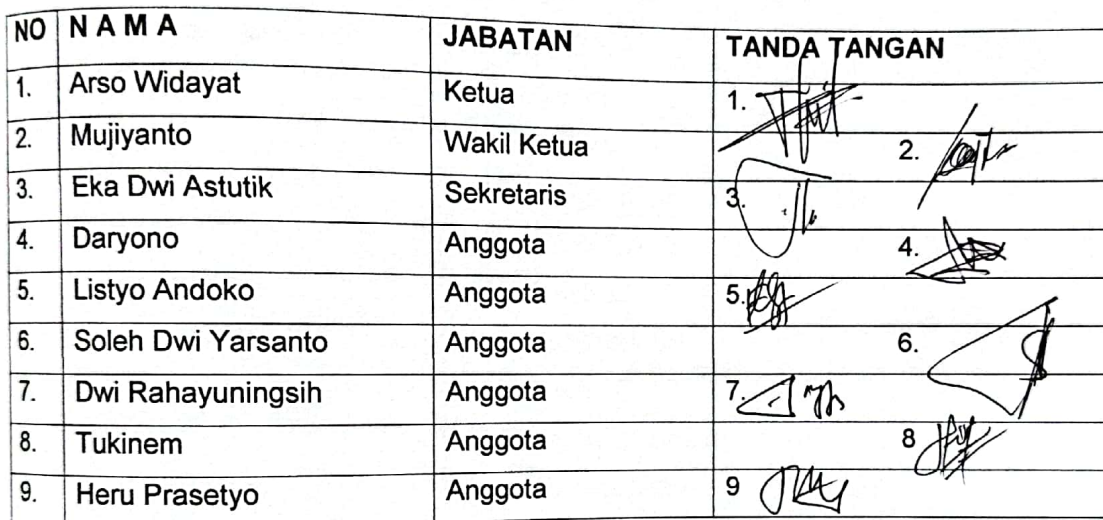 NO N A M A JABATAN TANDA TANGAN
1. Arso Widayat Ketua 1.
2. Mujiyanto Wakil Ketua 2.
3. Eka Dwi Astutik Sekretaris 3.
4. Daryono Anggota 4.
5. Listyo Andoko Anggota 5.
6. Soleh Dwi Yarsanto Anggota 6.
7. Dwi Rahayuningsih Anggota 7.
8. Tukinem Anggota 8
9. Heru Prasetyo Anggota 9